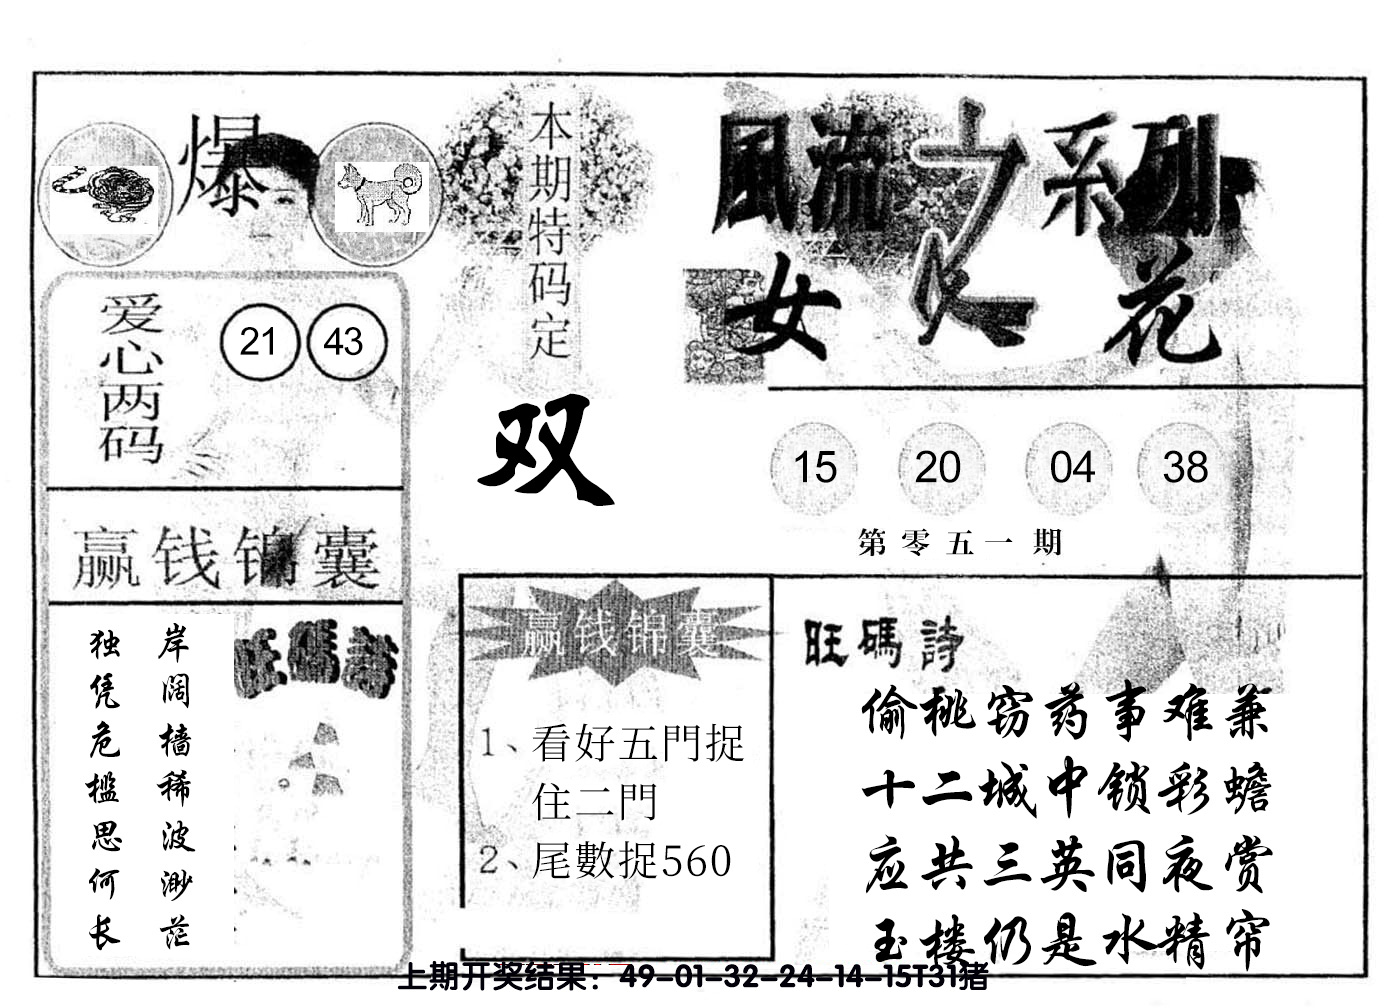 爆
本期特码定
双
風流之系列
女人花
爱心两码
21 43
15 20 04 38
第零五一期
赢钱锦囊
岸阔樯稀波渺茫
独凭危槛思何长
旺碼詩
赢钱锦囊
1、看好五門捉
住二門
2、尾數捉560
旺碼詩
偷桃窃药事难兼
十二城中锁彩蟾
应共三英同夜赏
玉楼仍是水精帘
上期开奖结果：49-01-32-24-14-15T31猪